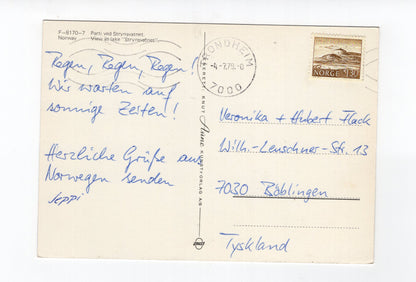 F-6170-7 Parti ved Strynsvatnet
Norway View in lake "Strynsvatnet"
Regen, Regen, Regen!
Wir warten auf
sonnige Zeiten!
Herzliche Grüße aus
Norwegen senden
Jeppi
TRONDHEIM
-4.-7.79.-0
7000
NORGE 1,30
ENEBERETT KNUT Aune KUNSTFORLAG AS
Veronika + Hubert Flack
Wilh.-Leuschner-Str. 13
7030 Böblingen
Tyskland